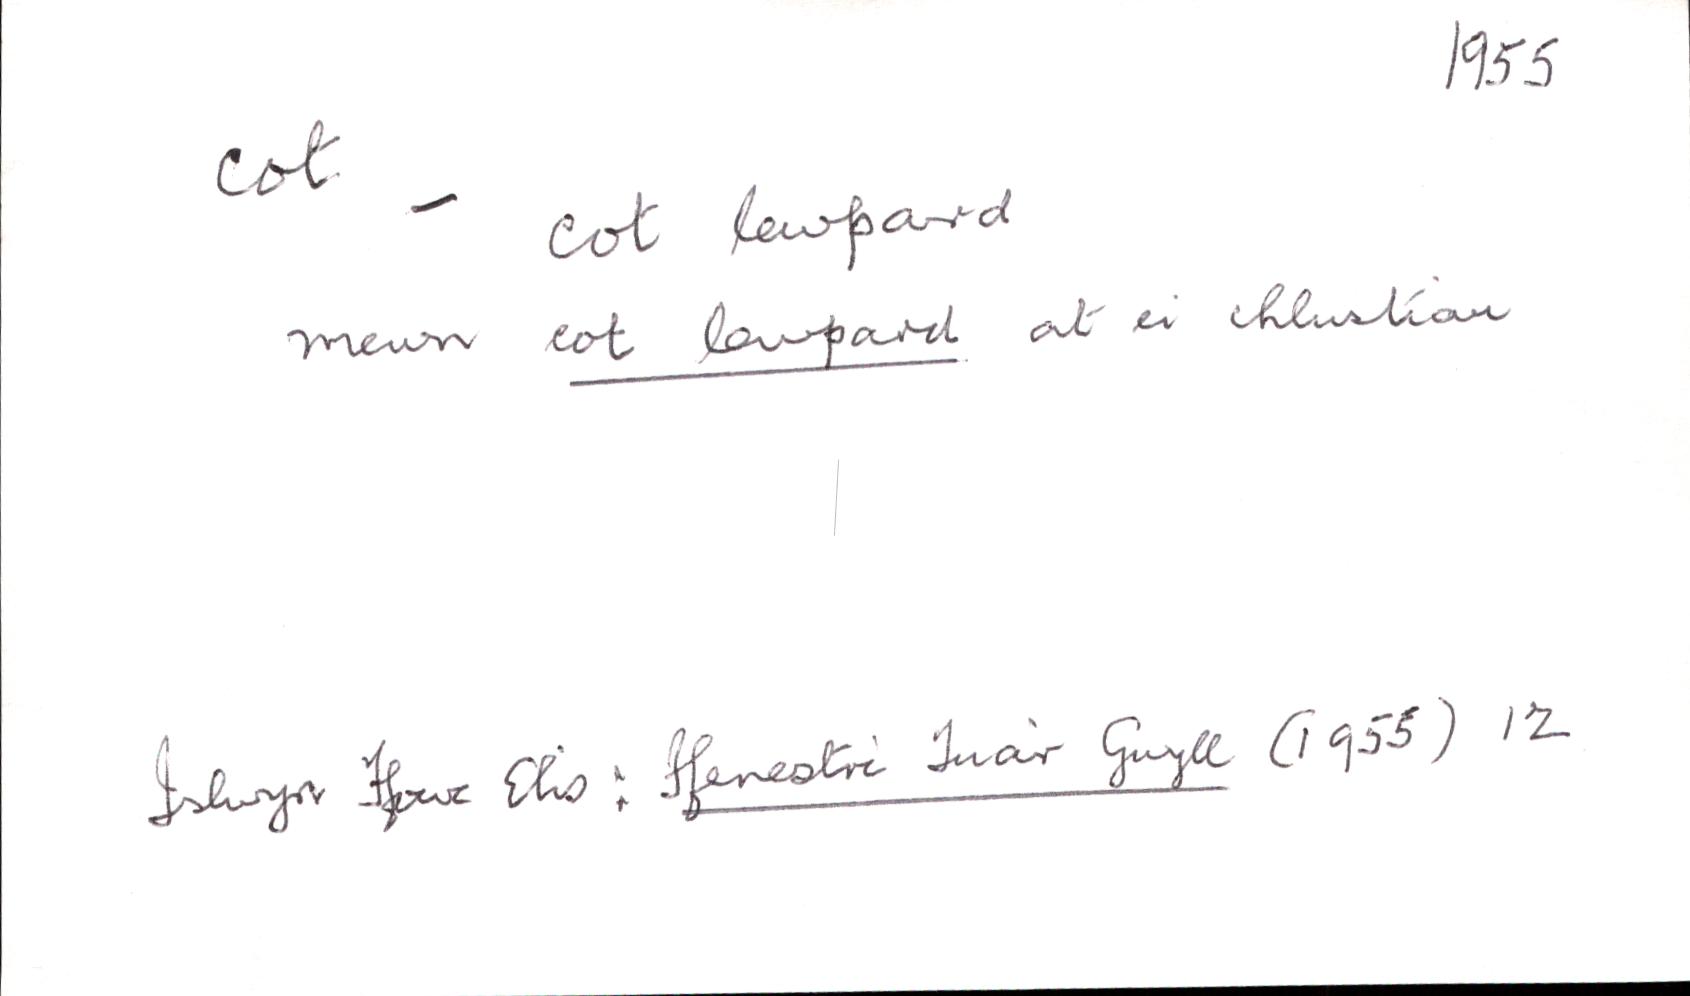 1955
cot -
cot lewpard
mewn cot lewpard at ei chlustiau
Islwyn Ffowc Elis : Ffenestri Tua'r Gwyll (1955) 12